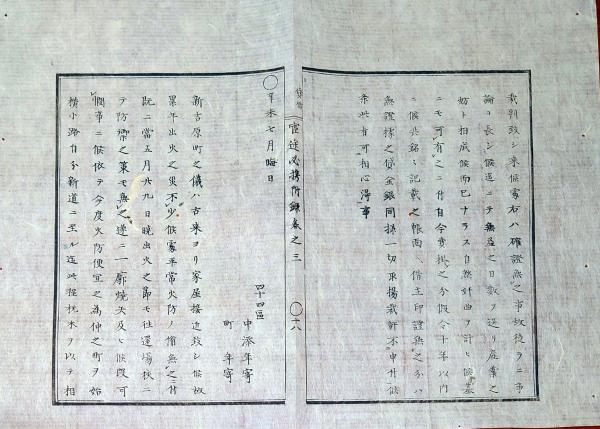 裁判致シ来候處右ハ確證無之事故後ヲニ爭
論ヲ長シ候迄ニテ無益之日數ヲ送リ産業之
妨ト相成候而已ナラス自然奸曲ヲ計ヒ候基
ニモ可有之ニ付自今賣掛之分假令十年以内
ニ候共銘々記載之帳面ヘ借主印證無之分ハ
無證據之貸金銀同樣一切取揚裁許不申付候
条此旨可相心得事
官途必携附録卷之三
〇十八
〇辛未七月晦日
四十四區
中添年寄
町年寄
新吉原町之儀ハ古来ヨリ家屋接近致シ候故
累年出火之災不少候處平常火防ノ備無之ニ付
既ニ當五月廿九日曉出火之節モ往還場狹ニ
テ防禦之策モ無之遂ニ一廓燒失及ヒ候段可
憫事ニ候依テ今度火防便宜之為仲之町ヲ始
横小路自分新道ニ至ル迄此程杭木ヲ以テ相